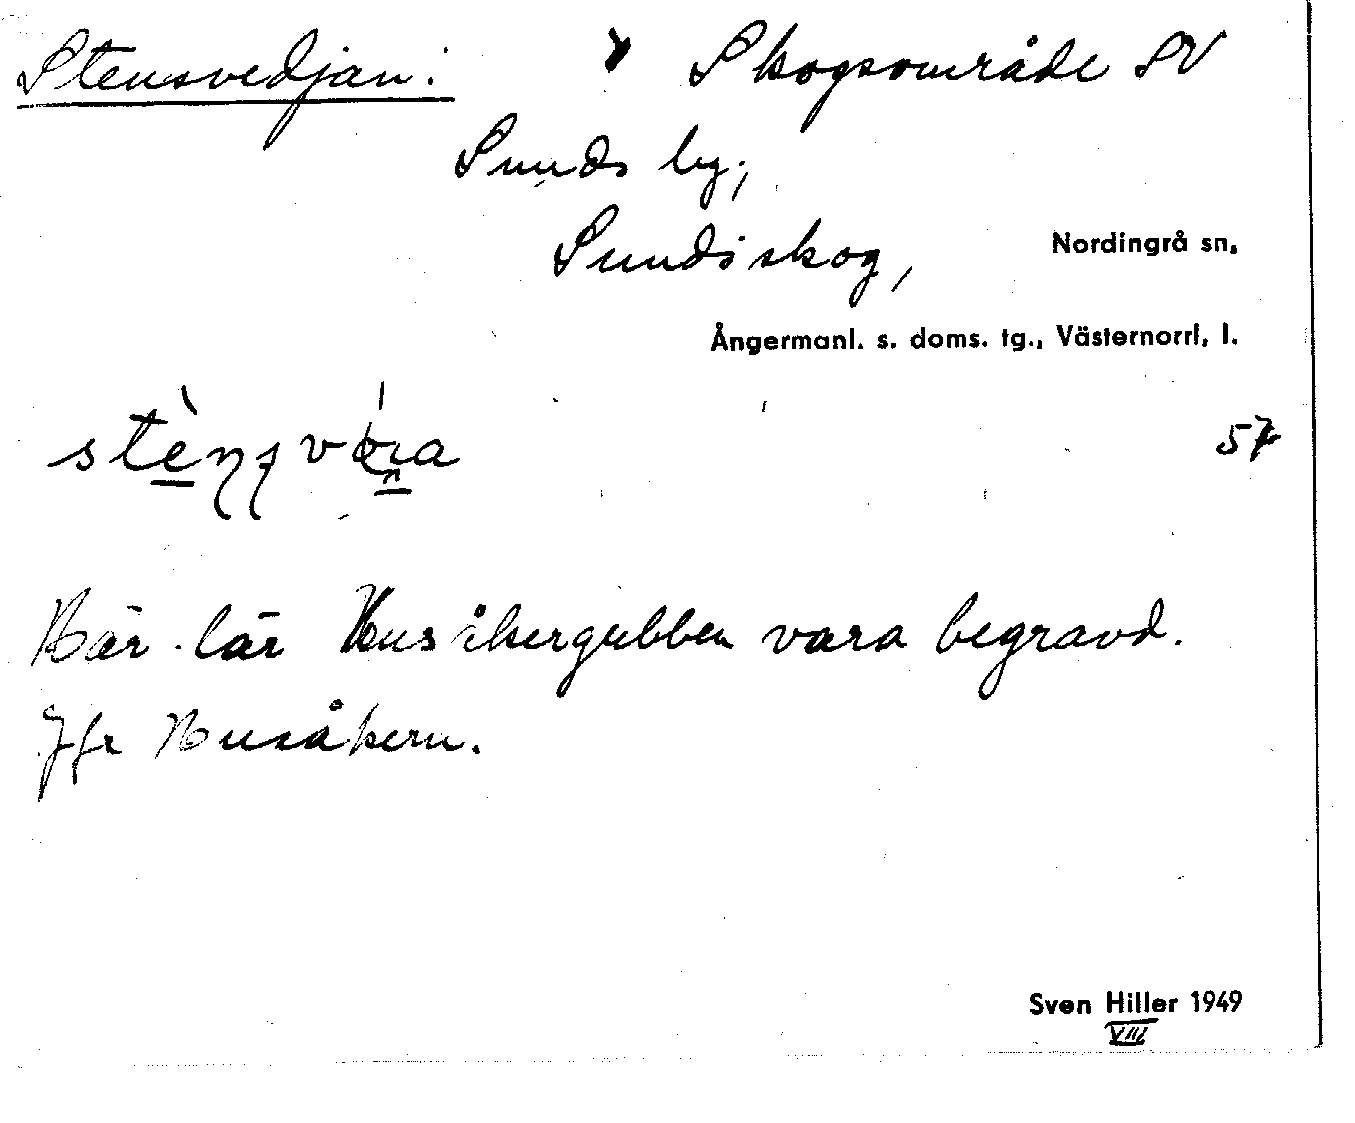 Stensvedjan: Skogsområde SV
Sunds by;
Sundsskog, Nordingrå sn.
Ångermanl. s. doms. tg., Västernorrl. l.
57
Här lär Husåkergubben vara begravd.
Jfr Husåkern.
Sven Hiller 1949
VIII